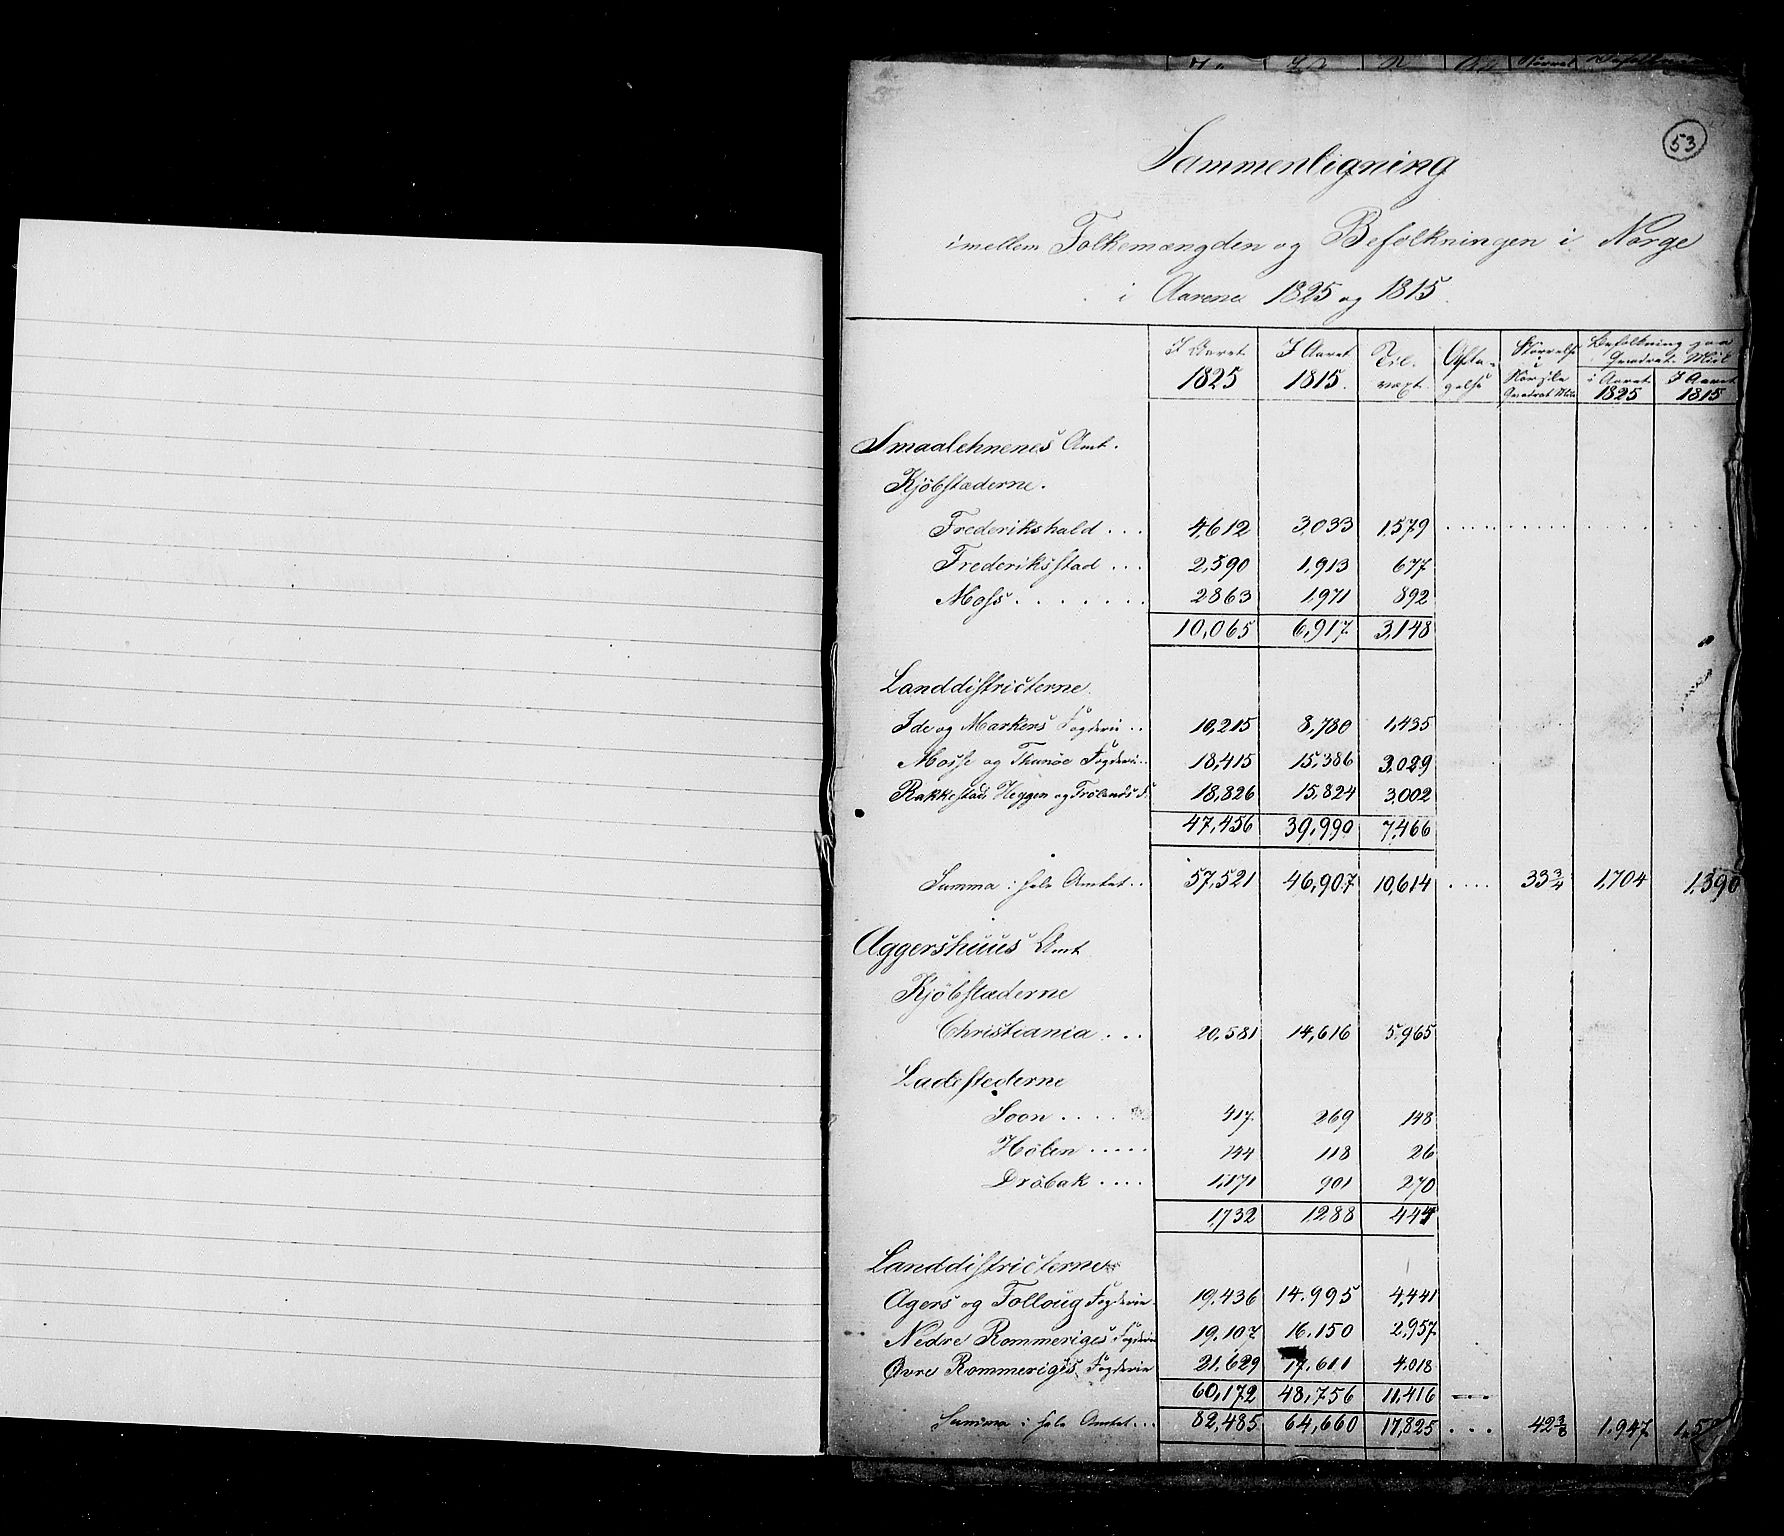 53
Sammenligning
imellem Folkemængden og Befolkningen i Norge
i Aarene 1825 og 1815.
I Aaret 1825 I Aaret 1815. Til- vaext. Afta- gelse Størrelse i Norske Quadrat Mile Befolkning paa Quadrat Miil
i Aaret 1825 I Aaret 1815
Smaalehnenes Amt.
Kjöbstæderne.
Frederikshald . . . 4,612 3,033 1,579
Frederiksstad . . . 2,590 1,913 677
Moss . . . . . . . 2863 1,971 892
10,065 6,917 3,148
Landdistricterne
Ide og Markers Fogderie . . 10,215 8,780 1,435
Mosse og Thunöe Fogderie . . 18,415 15,386 3,029
Rakkestads Heggen og Frölands F. 18,826 15,824 3,002
47,456 39,990 7,466
Summa i hele Amtet . . 57,521 46,907 10,614 . . . . 33 3/4 1,704 1,390
Aggershuus Amt
Kjöbstæderne
Christiania . . . 20,581 14,616 5,965
Ladestederne
Soon . . . . 417 269 148
Hölen . . . . . 144 118 26
Dröbak . . . . 1,171 901 270
1,732 1,288 444
Landdistricterne
Agers og Folloug Fogderie 19,436 14,995 4,441
Nedre Rommeriges Fogderie 19,107 16,150 2,957
Øvre Rommeriges Fogderie 21,629 17,611 4,018
60,172 48,756 11,416
Summa i hele Amtet . . . 82,485 64,660 17,825 . . . 42 3/8 1,947